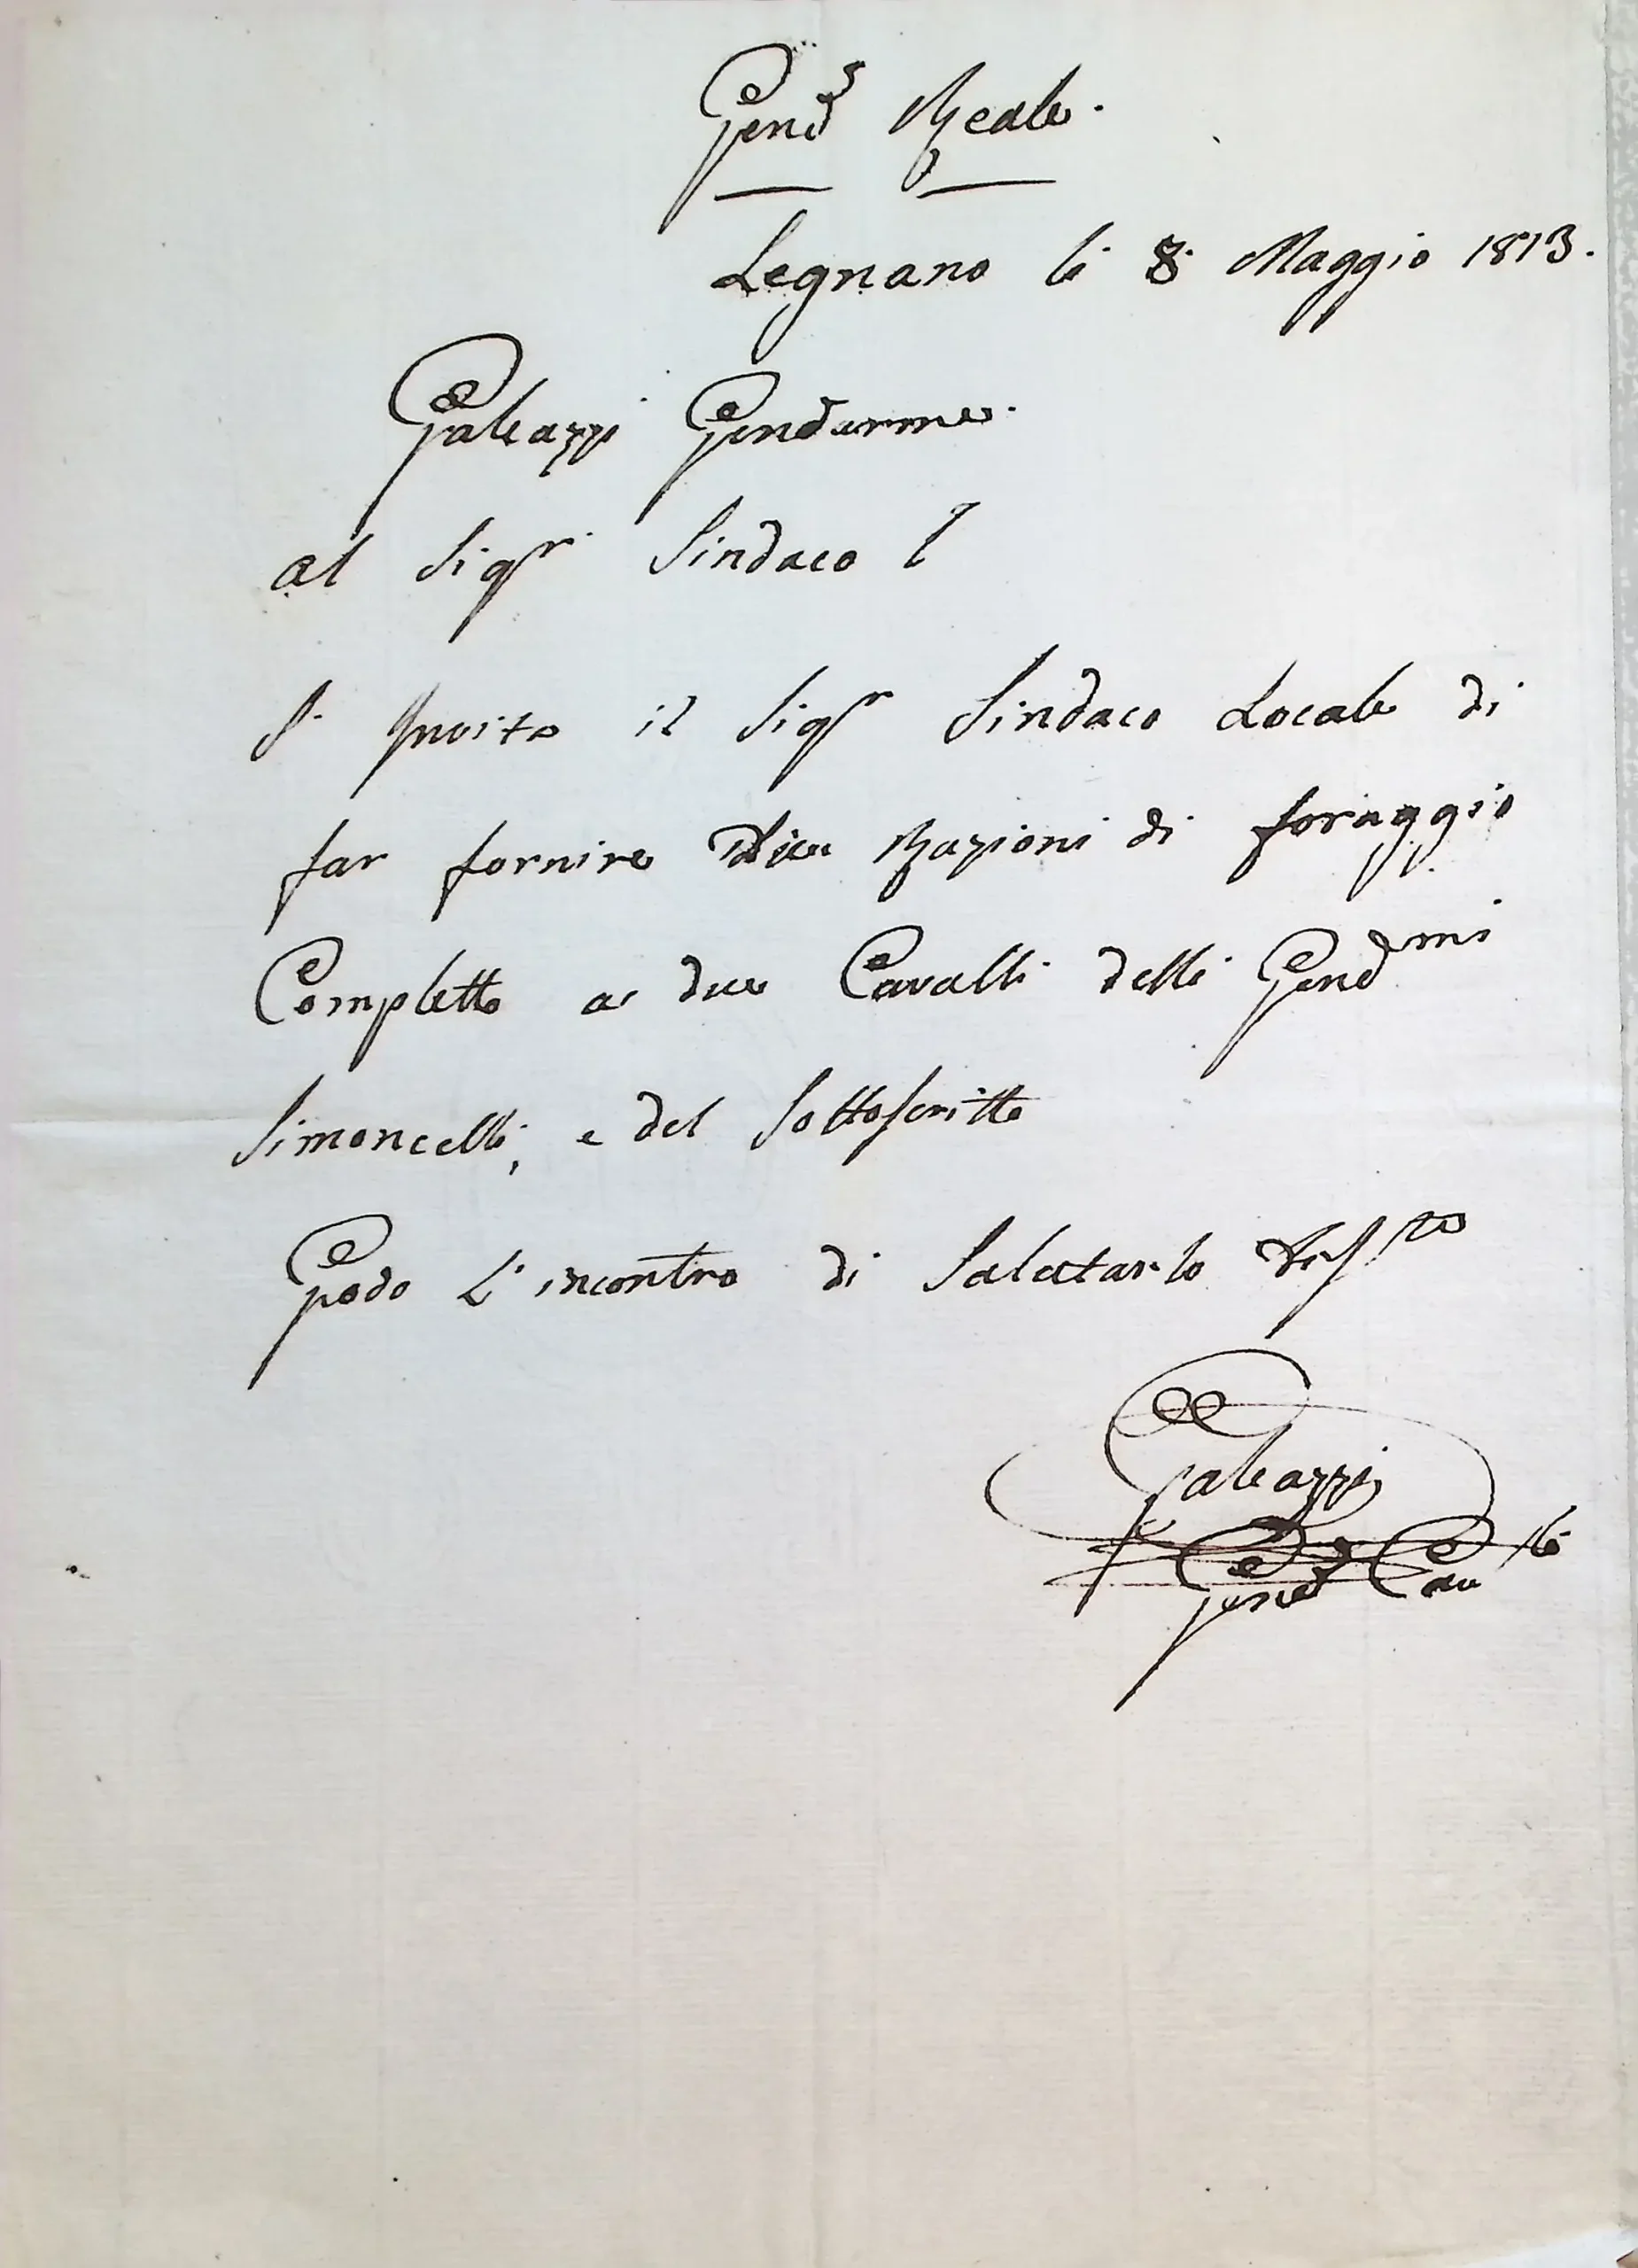 Gend.a Reale.
Legnano li 8. Maggio 1813.
Galeazzi Gendarme.
al Sigr. Sindaco
S. Invita il Sigr Sindaco Locale di
far fornire Razioni di foraggio
Completto a due Cavalli delli Gendmi
Simoncelli, e del Sottoscritto
Godo L'incontro di Salutarlo
Galeazzi
Gend